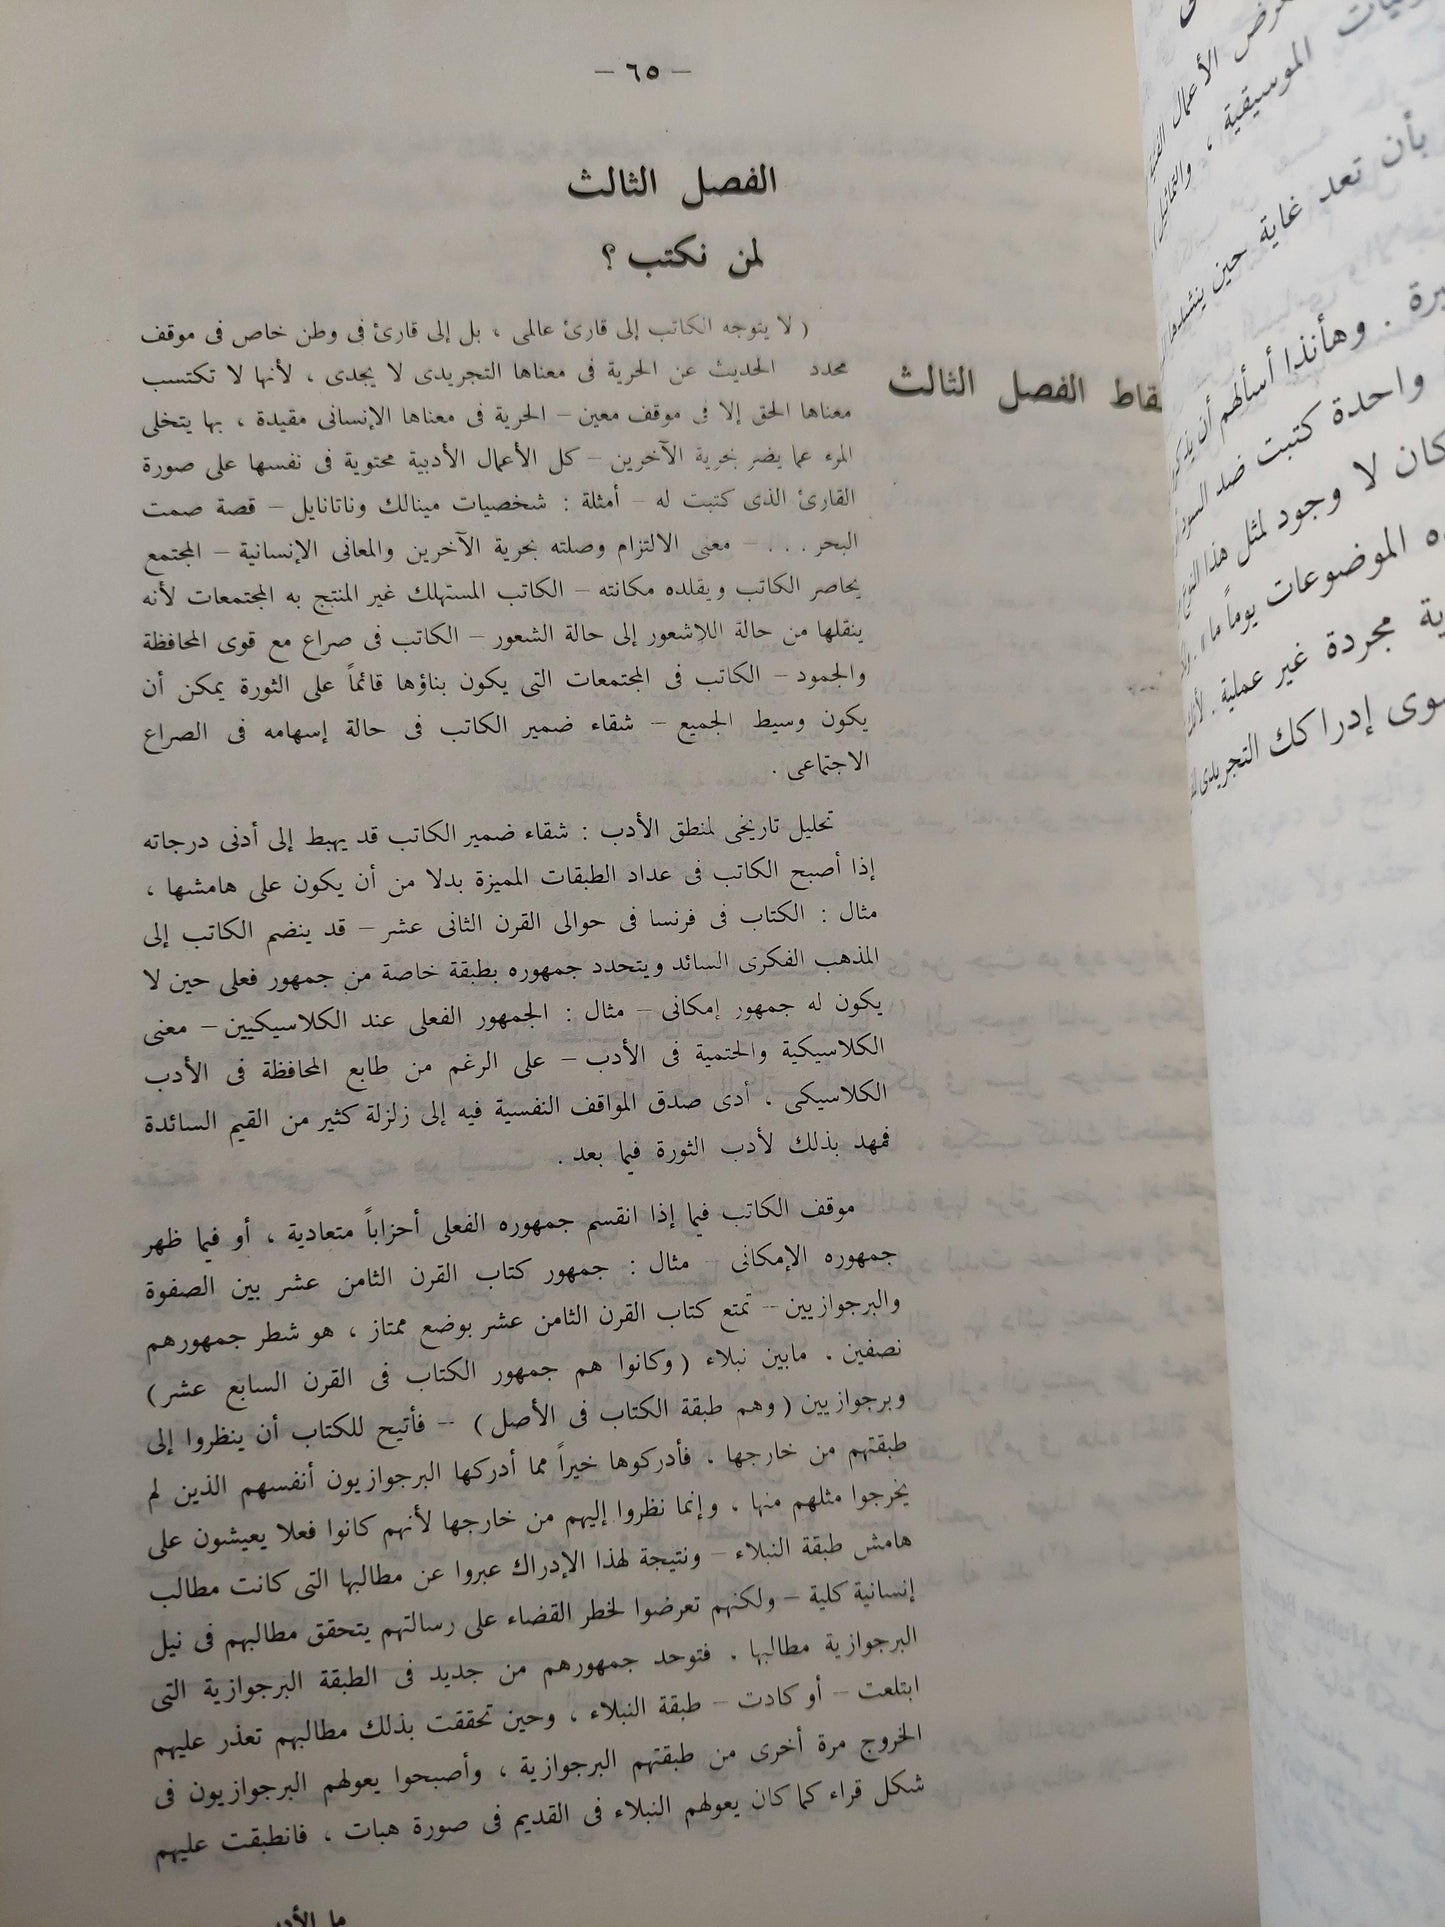 — ٦٥ —
الفصل الثالث
لمن نكتب ؟
( لا يتوجه الكاتب إلى قارئ عالمى ، بل إلى قارئ فى وطن خاص فى موقف
محدد الحديث عن الحرية فى معناها التجريدى لا يجدى ، لأنها لا تكتسب
معناها الحق إلا فى موقف معين – الحرية فى معناها الإنسانى مقيدة ، بها يتخلى
المرء عما يضر بحرية الآخرين – كل الأعمال الأدبية محتوية فى نفسها على صورة
القارئ الذى كتبت له – أمثلة : شخصيات مينالك وناتانايل – قصة صمت
البحر . . . – معنى الالتزام وصلته بحرية الآخرين والمعانى الإنسانية – المجتمع
يحاصر الكاتب ويقلده مكانته – الكاتب المستهلك غير المنتج به المجتمعات لأنه
ينقلها من حالة اللاشعور إلى حالة الشعور – الكاتب فى صراع مع قوى المحافظة
والجمود – الكاتب فى المجتمعات التى يكون بناؤها قائماً على الثورة يمكن أن
يكون وسيط الجميع – شقاء ضمير الكاتب فى حالة إسهامه فى الصراع
الاجتماعى .
تحليل تاريخى لمنطق الأدب : شقاء ضمير الكاتب قد يهبط إلى أدنى درجاته
إذا أصبح الكاتب فى عداد الطبقات المميزة بدلا من أن يكون على هامشها ،
مثال : الكتاب فى فرنسا فى حوالى القرن الثانى عشر – قد ينضم الكاتب إلى
المذهب الفكرى السائد ويتحدد جمهوره بطبقة خاصة من جمهور فعلى حين لا
يكون له جمهور إمكانى – مثال : الجمهور الفعلى عند الكلاسيكيين – معنى
الكلاسيكية والحتمية فى الأدب – على الرغم من طابع المحافظة فى الأدب
الكلاسيكى . أدى صدق المواقف النفسية فيه إلى زلزلة كثير من القيم السائدة
فمهد بذلك لأدب الثورة فيما بعد .
موقف الكاتب فيما إذا انقسم جمهوره الفعلى أحزاباً متعادية ، أو فيما ظهر
جمهوره الإمكانى – مثال : جمهور كتاب القرن الثامن عشر بين الصفوة
والبرجوازيين – تمتع كتاب القرن الثامن عشر بوضع ممتاز ، هو شطر جمهورهم
نصفين . مابين نبلاء ( وكانوا هم جمهور الكتاب فى القرن السابع عشر )
وبرجوازيين ( وهم طبقة الكتاب فى الأصل ) – فأتيح للكتاب أن ينظروا إلى
طبقتهم من خارجها . فأدركوها خيراً مما أدركها البرجوازيون أنفسهم الذين لم
يخرجوا مثلهم منها . وإنما نظروا إليهم من خارجها لأنهم كانوا فعلا يعيشون على
هامش طبقة النبلاء – ونتيجة لهذا الإدراك عبروا عن مطالبها التى كانت مطالب
إنسانية كلية – ولكنهم تعرضوا لخطر القضاء على رسالتهم يتحقق مطالبهم فى نيل
البرجوازية مطالبها . فتوحد جمهورهم من جديد فى الطبقة البرجوازية التى
ابتلعت – أو كادت – طبقة النبلاء ، وحين تحققت بذلك مطالبهم تعذر عليهم
الخروج مرة أخرى من طبقتهم البرجوازية ، وأصبحوا يعولهم البرجوازيون فى
شكل قراء كما كان يعولهم النبلاء فى القديم فى صورة هبات ، فانطبقت عليهم
الفصل الثالث
الموسيقية ،
بأن تعد غاية حين
. وهأنذا أسألهم أن
واحدة كتبت ضد
كان لا وجود لمثل هذا
الموضوعات يوماً ما
مجردة غير عملية .
إدراكك التجريدى